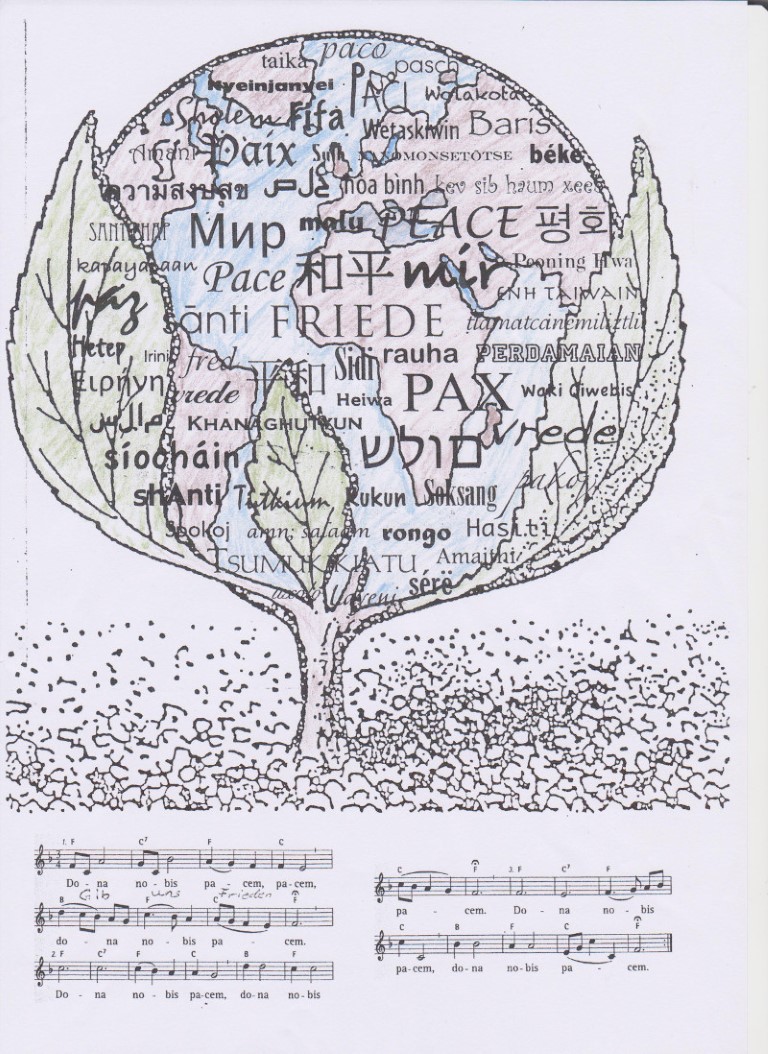 taika paco pasch
Nyeinjanyei Wolakota
Sholem Fifa PACI Wetaskiwin Baris
Amani Paix Sulh béke
ความสงบสุข hòa bình kev sib haum xeeb
Мир malu PEACE 평화
kapayapaan Pace 和平 mír Pooning Hwa
paz śānti FRIEDE ĖNH TAIWAIN
tlamatcanemiliztli
Hetep Irini fred Sidi rauha PERDAMAIAN
Ειρήνη vrede 平和 Heiwa PAX Waki Ijiwebis
KHANAGHUTYUN vrede
síocháin שלום
shAnti Tutkium Rukun Soksang pakoj
Spokoj amn; salaam rongo Hasiti
TSUMUKIKIATU Amaithi
uxolo Uyeni sérë
1. F C7 F C
Do - na no - bis pa - cem, pa - cem,
Gib uns Frieden
B F C F
do - na no - bis pa - cem.
2. F C7 F C B F
Do - na no - bis pacem, do-na no-bis
C F 3. F C7 F
pa - cem. Do - na no - bis
C B F C F
pacem, do-na no-bis pa - cem.